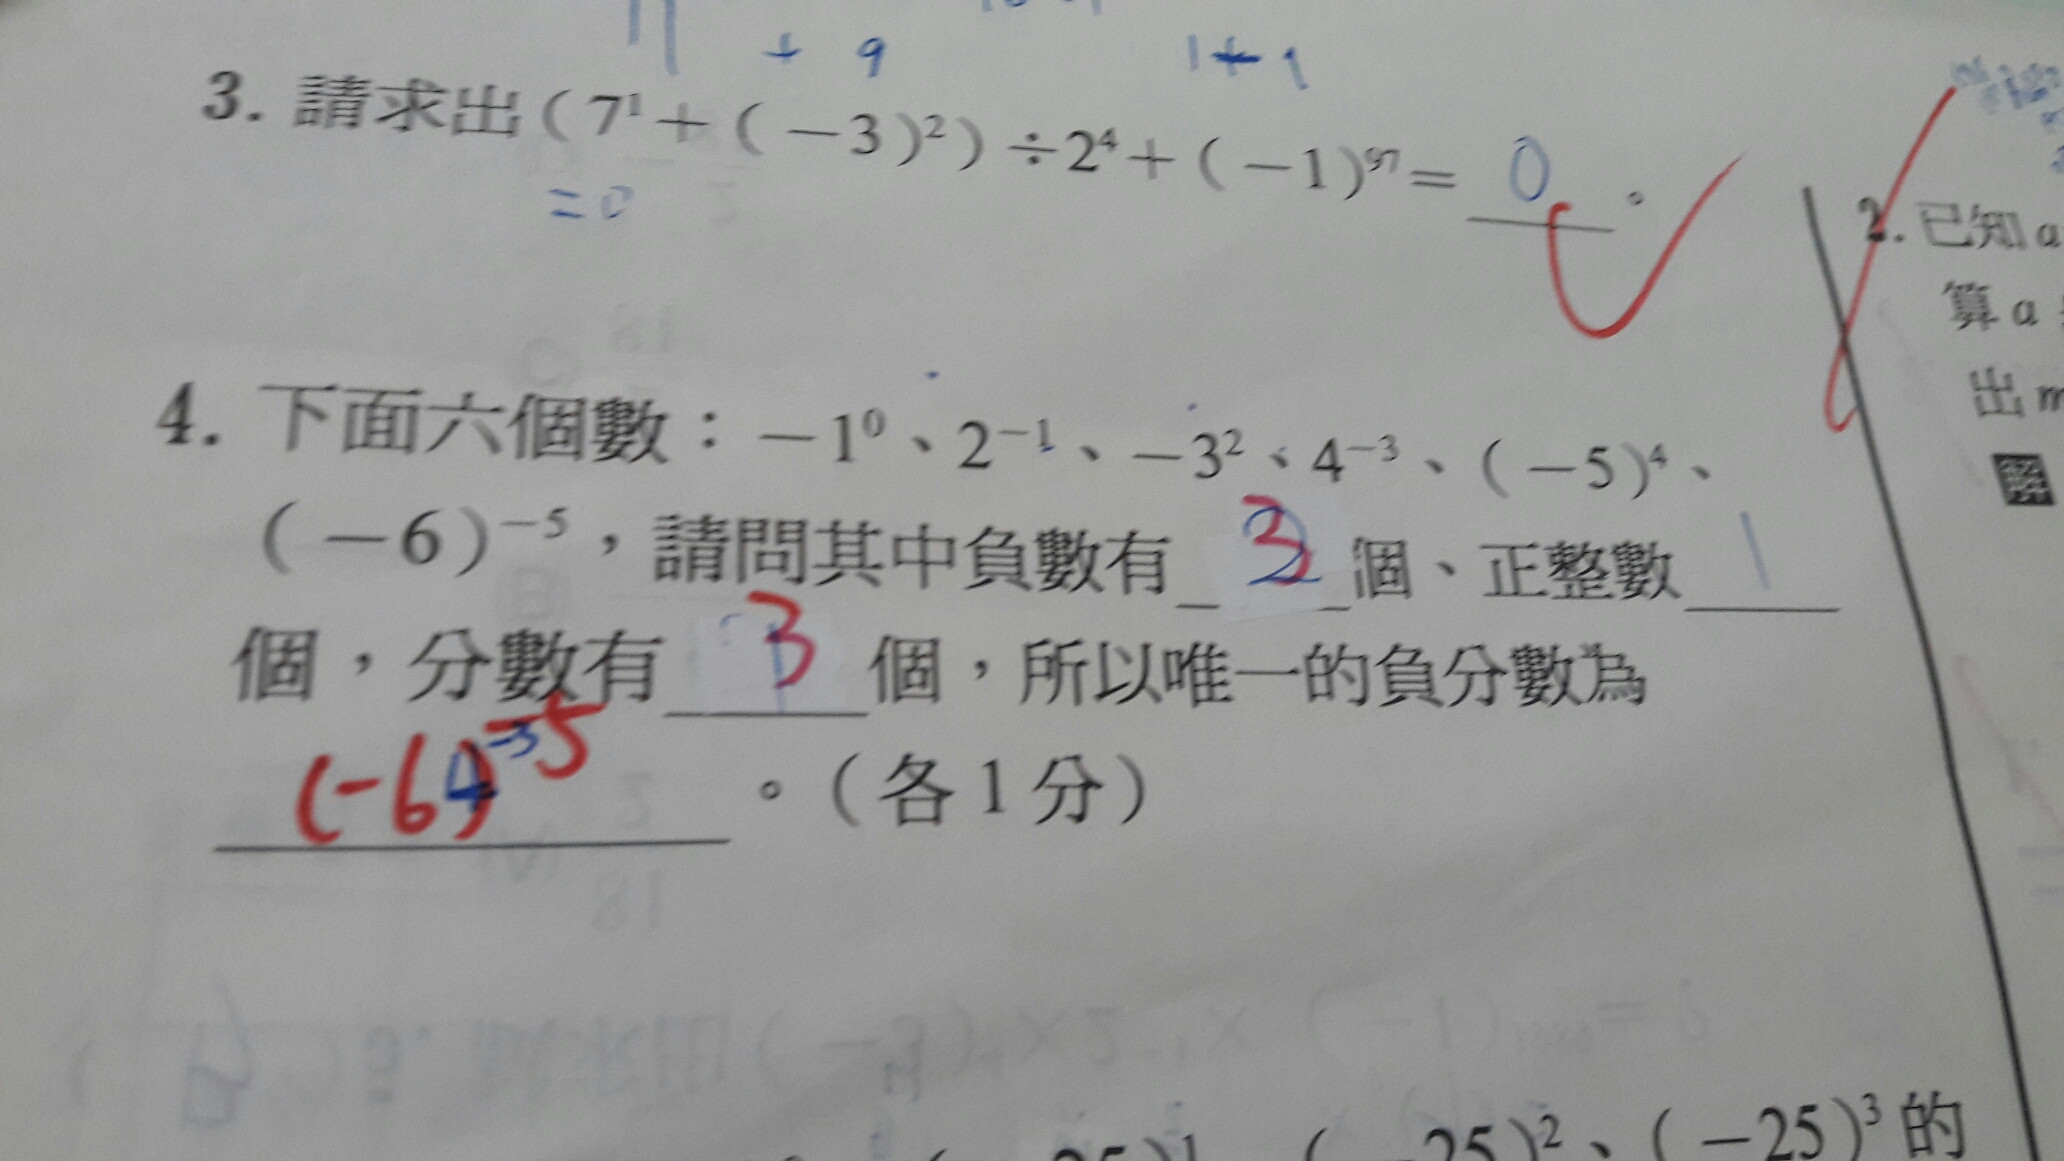 + 9 1+1
3. 請求出(7¹+(-3)²)÷2⁴+(-1)⁹⁷= 0 。
=0
4. 下面六個數:-1⁰、2⁻¹、-3²、4⁻³、(-5)⁴、
(-6)⁻⁵,請問其中負數有 3 個、正整數 1
個,分數有 3 個,所以唯一的負分數為
(-6)⁻⁵ 。(各1分)
2. 已知a
算a
出m
解
(-25)²、(-25)³的